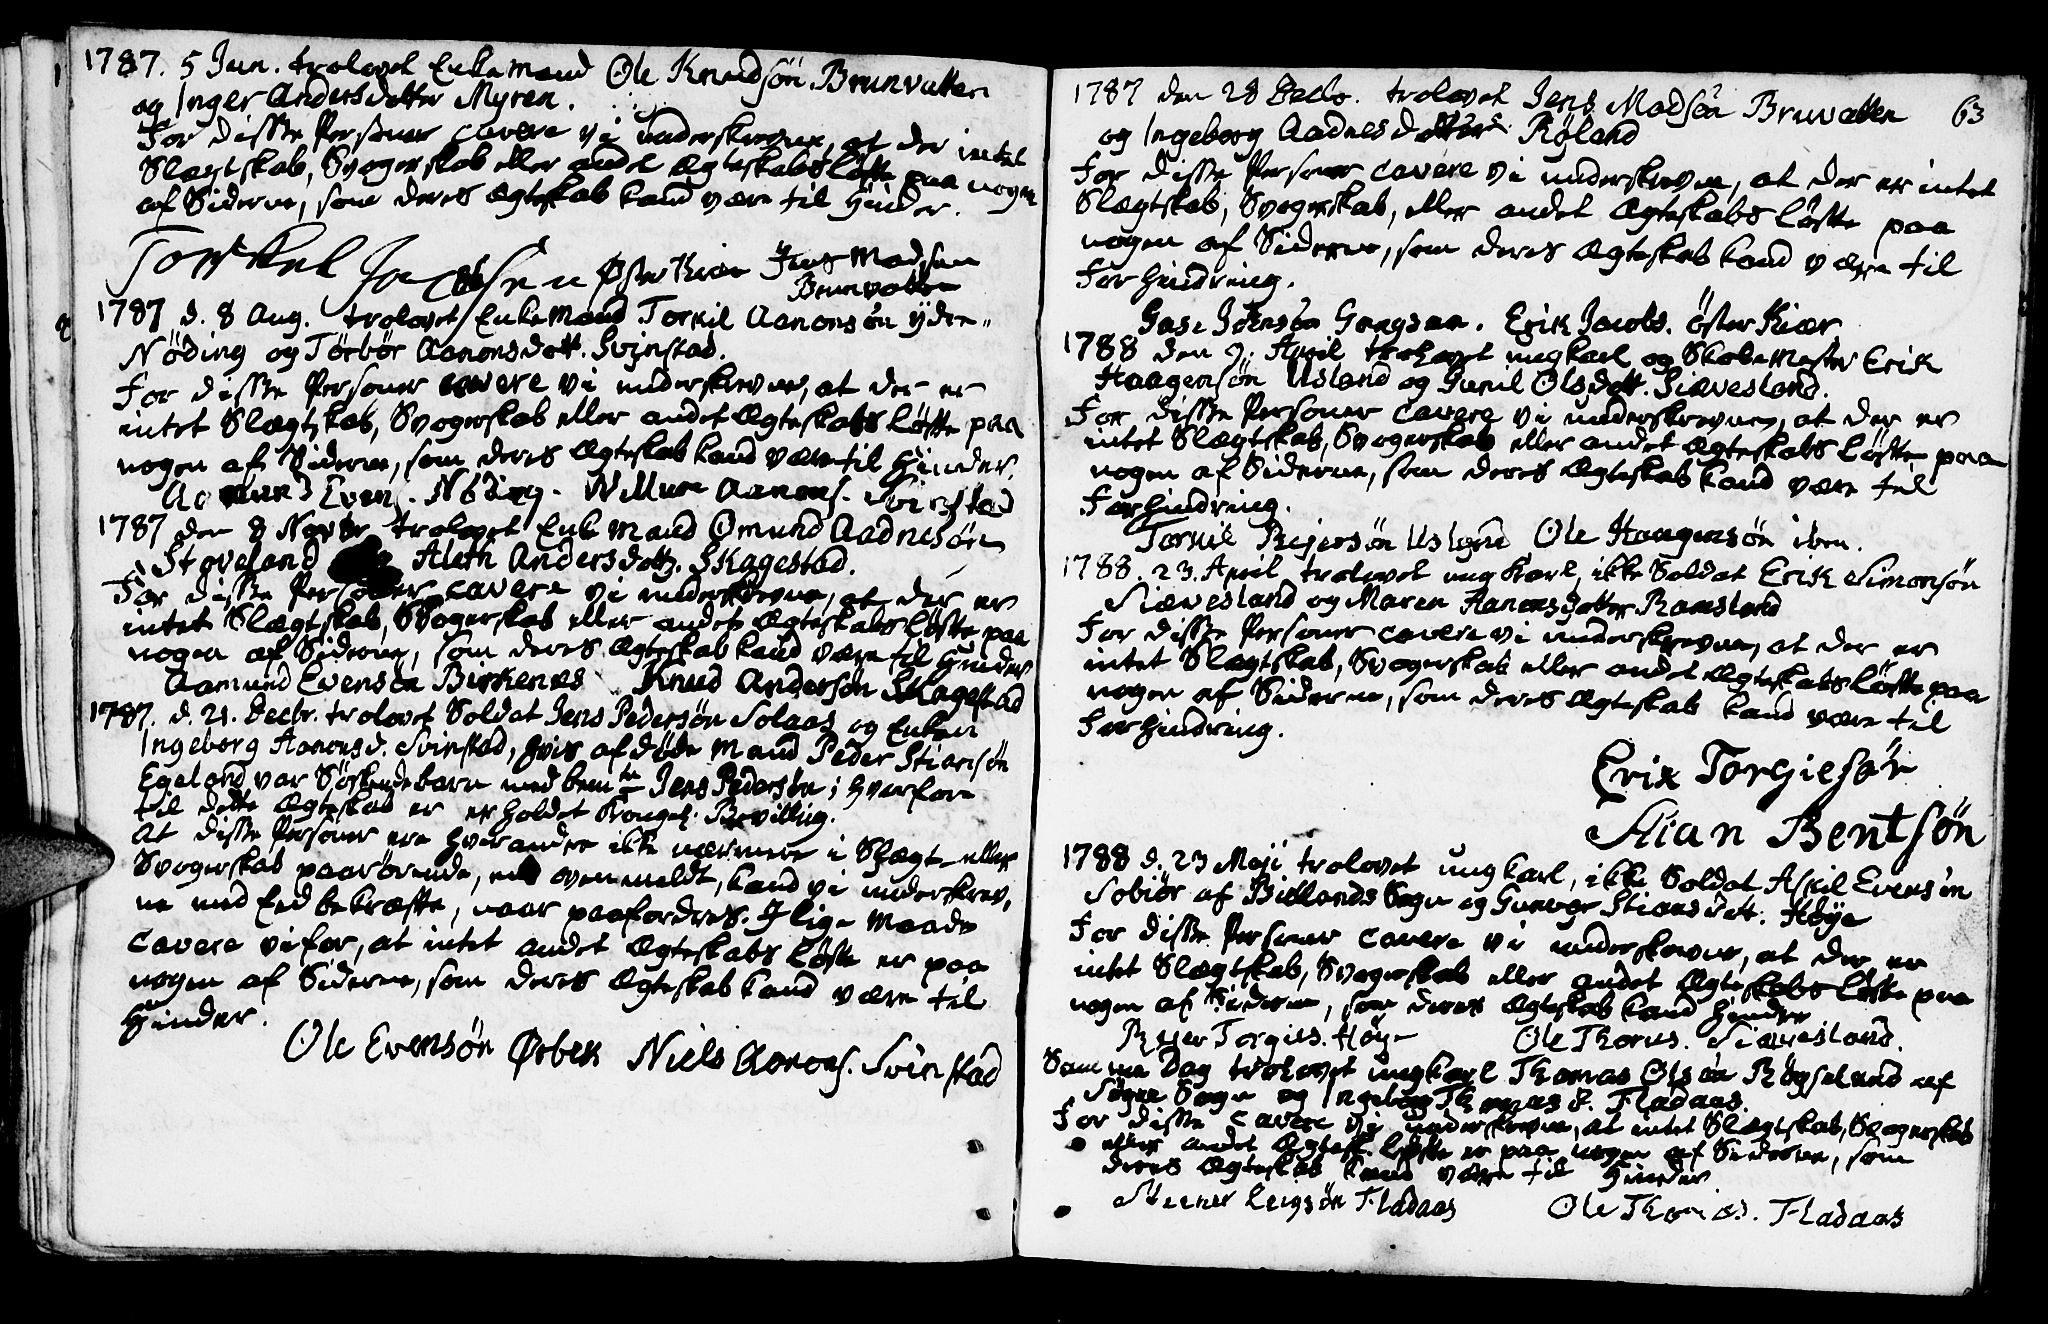 1787. 5 Jun. trolovet Enkemand Ole Knudsön Brunvatten
og Inger Andersdotter Myren.
For disse Personer cavere vi underskrevne, at der intet
Slægtskab, Svogerskab eller andet Ægteskabs Löfte paa nogen
af Siderne, som deres Ægteskab kand være til Hinder.
Torkel Østerkiær Jens Madsen
Brunvatten
1787 d. 8 Aug. trolovet Enkemand Torkil Aanonsön ydre-
Nöding og Törbör Aanonsdott. Svinstad.
For disse Personer cavere vi underskrevne, at der er
intet Slægtskab, Svogerskab eller andet Ægteskabs Löfte paa
nogen af Siderne, som deres Ægteskab kand være til Hinder.
Aamund Evens. Nöding. Willum Aanons. Svinstad
1787 den 8 Novbr trolovet Enkemand Omund Aadnesön
Stoveland Aleth Andersdottr. Skagestad.
For disse Personer cavere vi underskrevne, at der er
intet Slægtskab, Svogerskab eller andet Ægteskabs Löfte paa
nogen af Siderne, som deres Ægteskab kand være til Hinder
Aamund Evensön Birkenes Knud Andersön Skagestad
1787. d. 21. Decbr. trolovet Soldat Jens Pedersön Solaas og Enken
Ingeborg Aanonsd. Svinstad, hvis afdöde Mand Peder Stiansön
Egeland var Söskendebarn med bemte Jens Pedersön; hvorfor
til dette Ægteskab er erholdet Kongel. Bevilling.
At disse Personer ere hverandre ikke nærmere i Slægt- eller
Svogerskab paarörende, end ovenmeldt, kand vi underskrev,
ne med Eed bekræfte, naar paafordres. I lige Maade
cavere vi for, at intet andet Ægteskabs Löfte er paa
nogen af Siderne, som deres Ægteskab kand være til
Hinder.
Ole Evensön Ørbek Niels Aanons. Svinstad
63
1787 den 28 Decbr. trolovet Jens Madsön Bruvatten
og Ingeborg Aadnesdotter Röland
For disse Personer cavere vi underskrevne, at der er intet
Slægtskab, Svogerskab, eller andet Ægteskabs Löfte paa
nogen af Siderne, som deres Ægteskab kand være til
Forhindring.
Jensön Erik Jacobs. Österkiær
1788 den 9. April trolovet ungkarl og Skolemester Erik
Haagensön Usland og Gunil Olsdott. Siævesland.
For disse Personer cavere vi underskrevne, at der er
intet Slægtskab, Svogerskab eller andet Ægteskabs Löfte paa
nogen af Siderne, som deres Ægteskab kand være til
Forhindring.
Torkil Reiersön Usland Ole Haagensön iben.
1788. 23. April trolovet ungkarl, ikke Soldat Erik Simonsön
Siævesland og Maren Aanensdotter Ramsland
For disse Personer cavere vi underskrevne, at der er
intet Slægtskab, Svogerskab eller andet Ægteskabs Löfte paa
nogen af Siderne, som deres Ægteskab kand være til
Forhindring.
Erik Torgiesön
Stian Bentsön
1788 d. 23 Maji trolovet ungkarl, ikke Soldat Askil Evensön
Sobiör af Biellands Sogn og Gunvor Stiansdott. Höye
For disse Personer cavere vi underskrevne, at der er
intet Slægtskab, Svogerskab eller andet Ægteskabs Löfte paa
nogen af Siderne, som deres Ægteskab kand Hindre
Reier Torgies. Höye Ole Thomes. Siævesland.
Samme Dag trolovet ungkarl Thomas Olsön Röysland af
Sögne Sogn og Ingeborg Thomas d. Fladaas.
For disse cavere vi underskrevne, at intet Slægtskab, Svogerskab
eller andet Ægtesk. Löfte er paa nogen af Siderne, som
deres Ægteskab kand være til Hinder
Steener Fladaas Ole Thomas. Fladaas